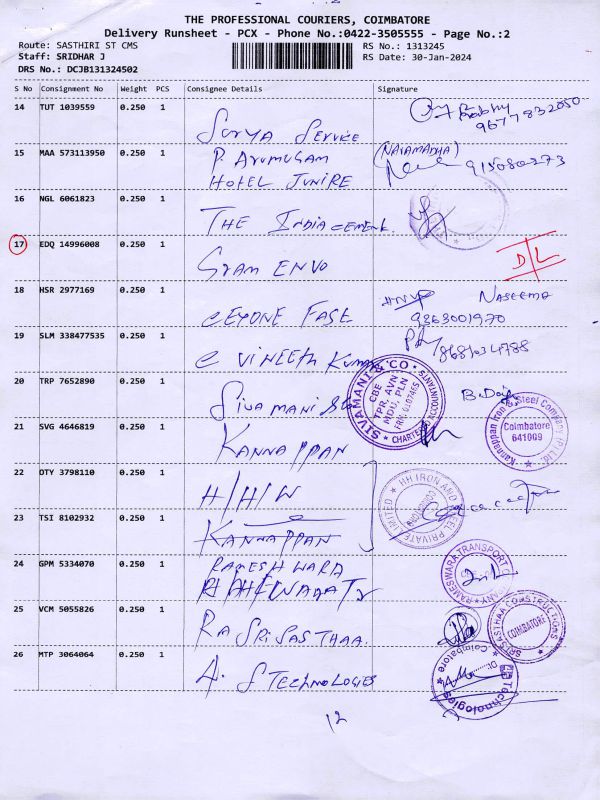 THE PROFESSIONAL COURIERS, COIMBATORE
Delivery Runsheet - PCX - Phone No.:0422-3505555 - Page No.:2
Route: SASTHIRI ST CMS
Staff: SRIDHAR J
DRS No.: DCJB131324502
RS No.: 1313245
RS Date: 30-Jan-2024
S No Consignment No Weight PCS Consignee Details Signature
14 TUT 1039559 0.250 1
Surya Service
Prabhu
9677832050
15 MAA 573113950 0.250 1
P. Arumugam
Hotel Junire
915080273
16 NGL 6061823 0.250 1
The India cement
17 EDQ 14996008 0.250 1
Syam Envo
D/L
18 HSR 2977169 0.250 1
Ceyone Fase
Naseema
9363001970
19 SLM 338477535 0.250 1
C Vineeth Kumar
20 TRP 7652890 0.250 1
Sivamani
SIVAMANI & CO
CHARTERED ACCOUNTANTS
CBE
TPR, AVN
MDU, PLN
21 SVG 4646819 0.250 1
Kannappan
Kannappan Iron & Steel Company (P) Ltd.
Coimbatore
641009
22 DTY 3798110 0.250 1
H/H/W
23 TSI 8102932 0.250 1
Kannappan
HH IRON AND STEEL PRIVATE LIMITED
24 GPM 5334070 0.250 1
Rameshwara
RAMESWARA TRANSPORT
25 VCM 5055826 0.250 1
Ra Sri Sasthaa
SRI SASTHAA CONSTRUCTIONS
COIMBATORE
26 MTP 3064064 0.250 1
A. S Technologies
Technologies
Coimbatore
12